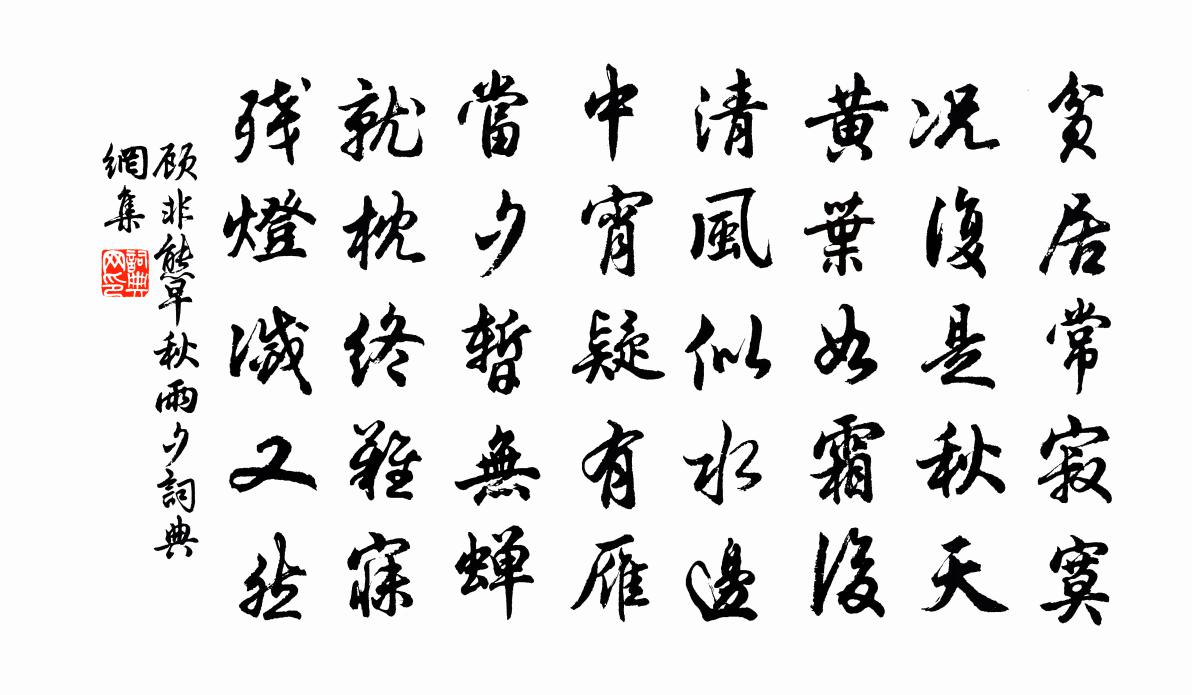 貧居常寂寞
況復是秋天
黃葉如霜後
清風似水邊
中宵疑有雁
當夕暫無蟬
就枕終難寐
殘燈滅又然
顧非熊早秋雨夕詞典
網集
詞典网印